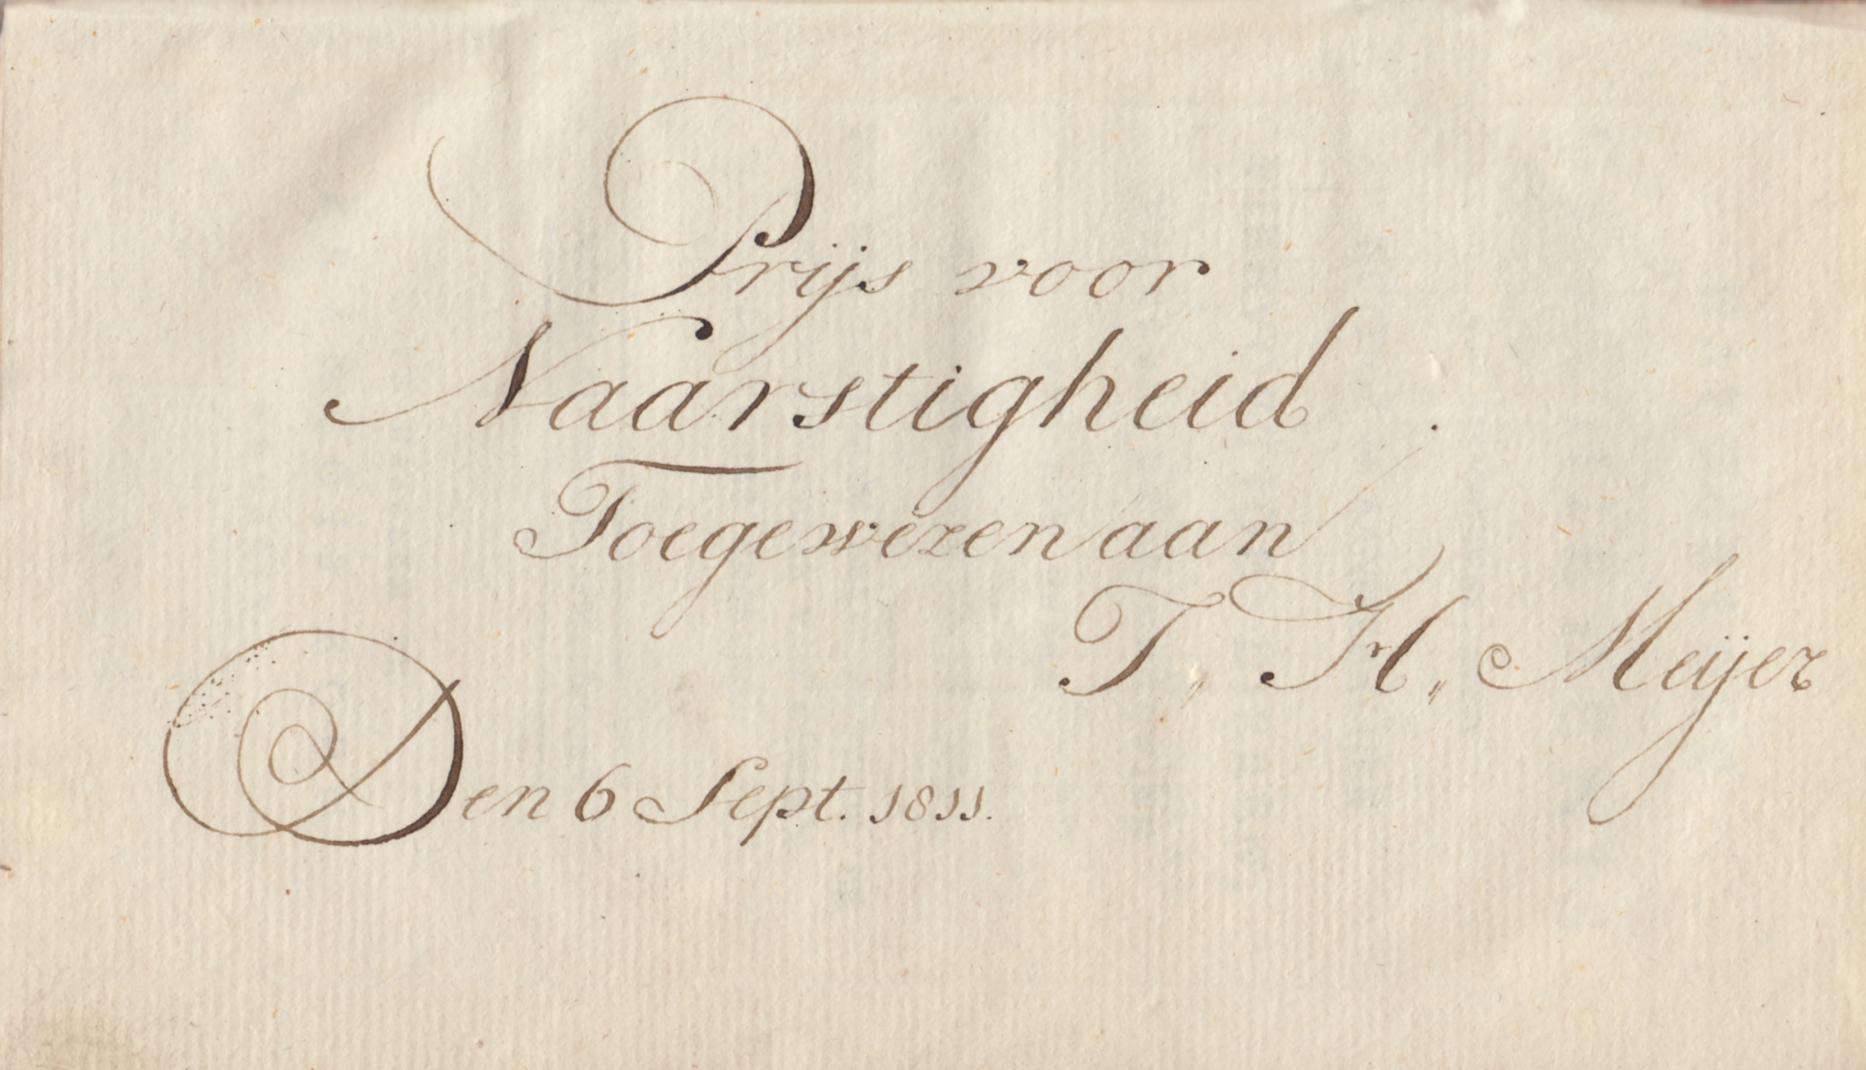 Prijs voor
Naarstigheid
Toegewezen aan
T, H,, Meijer
Den 6 Sept. 1811.